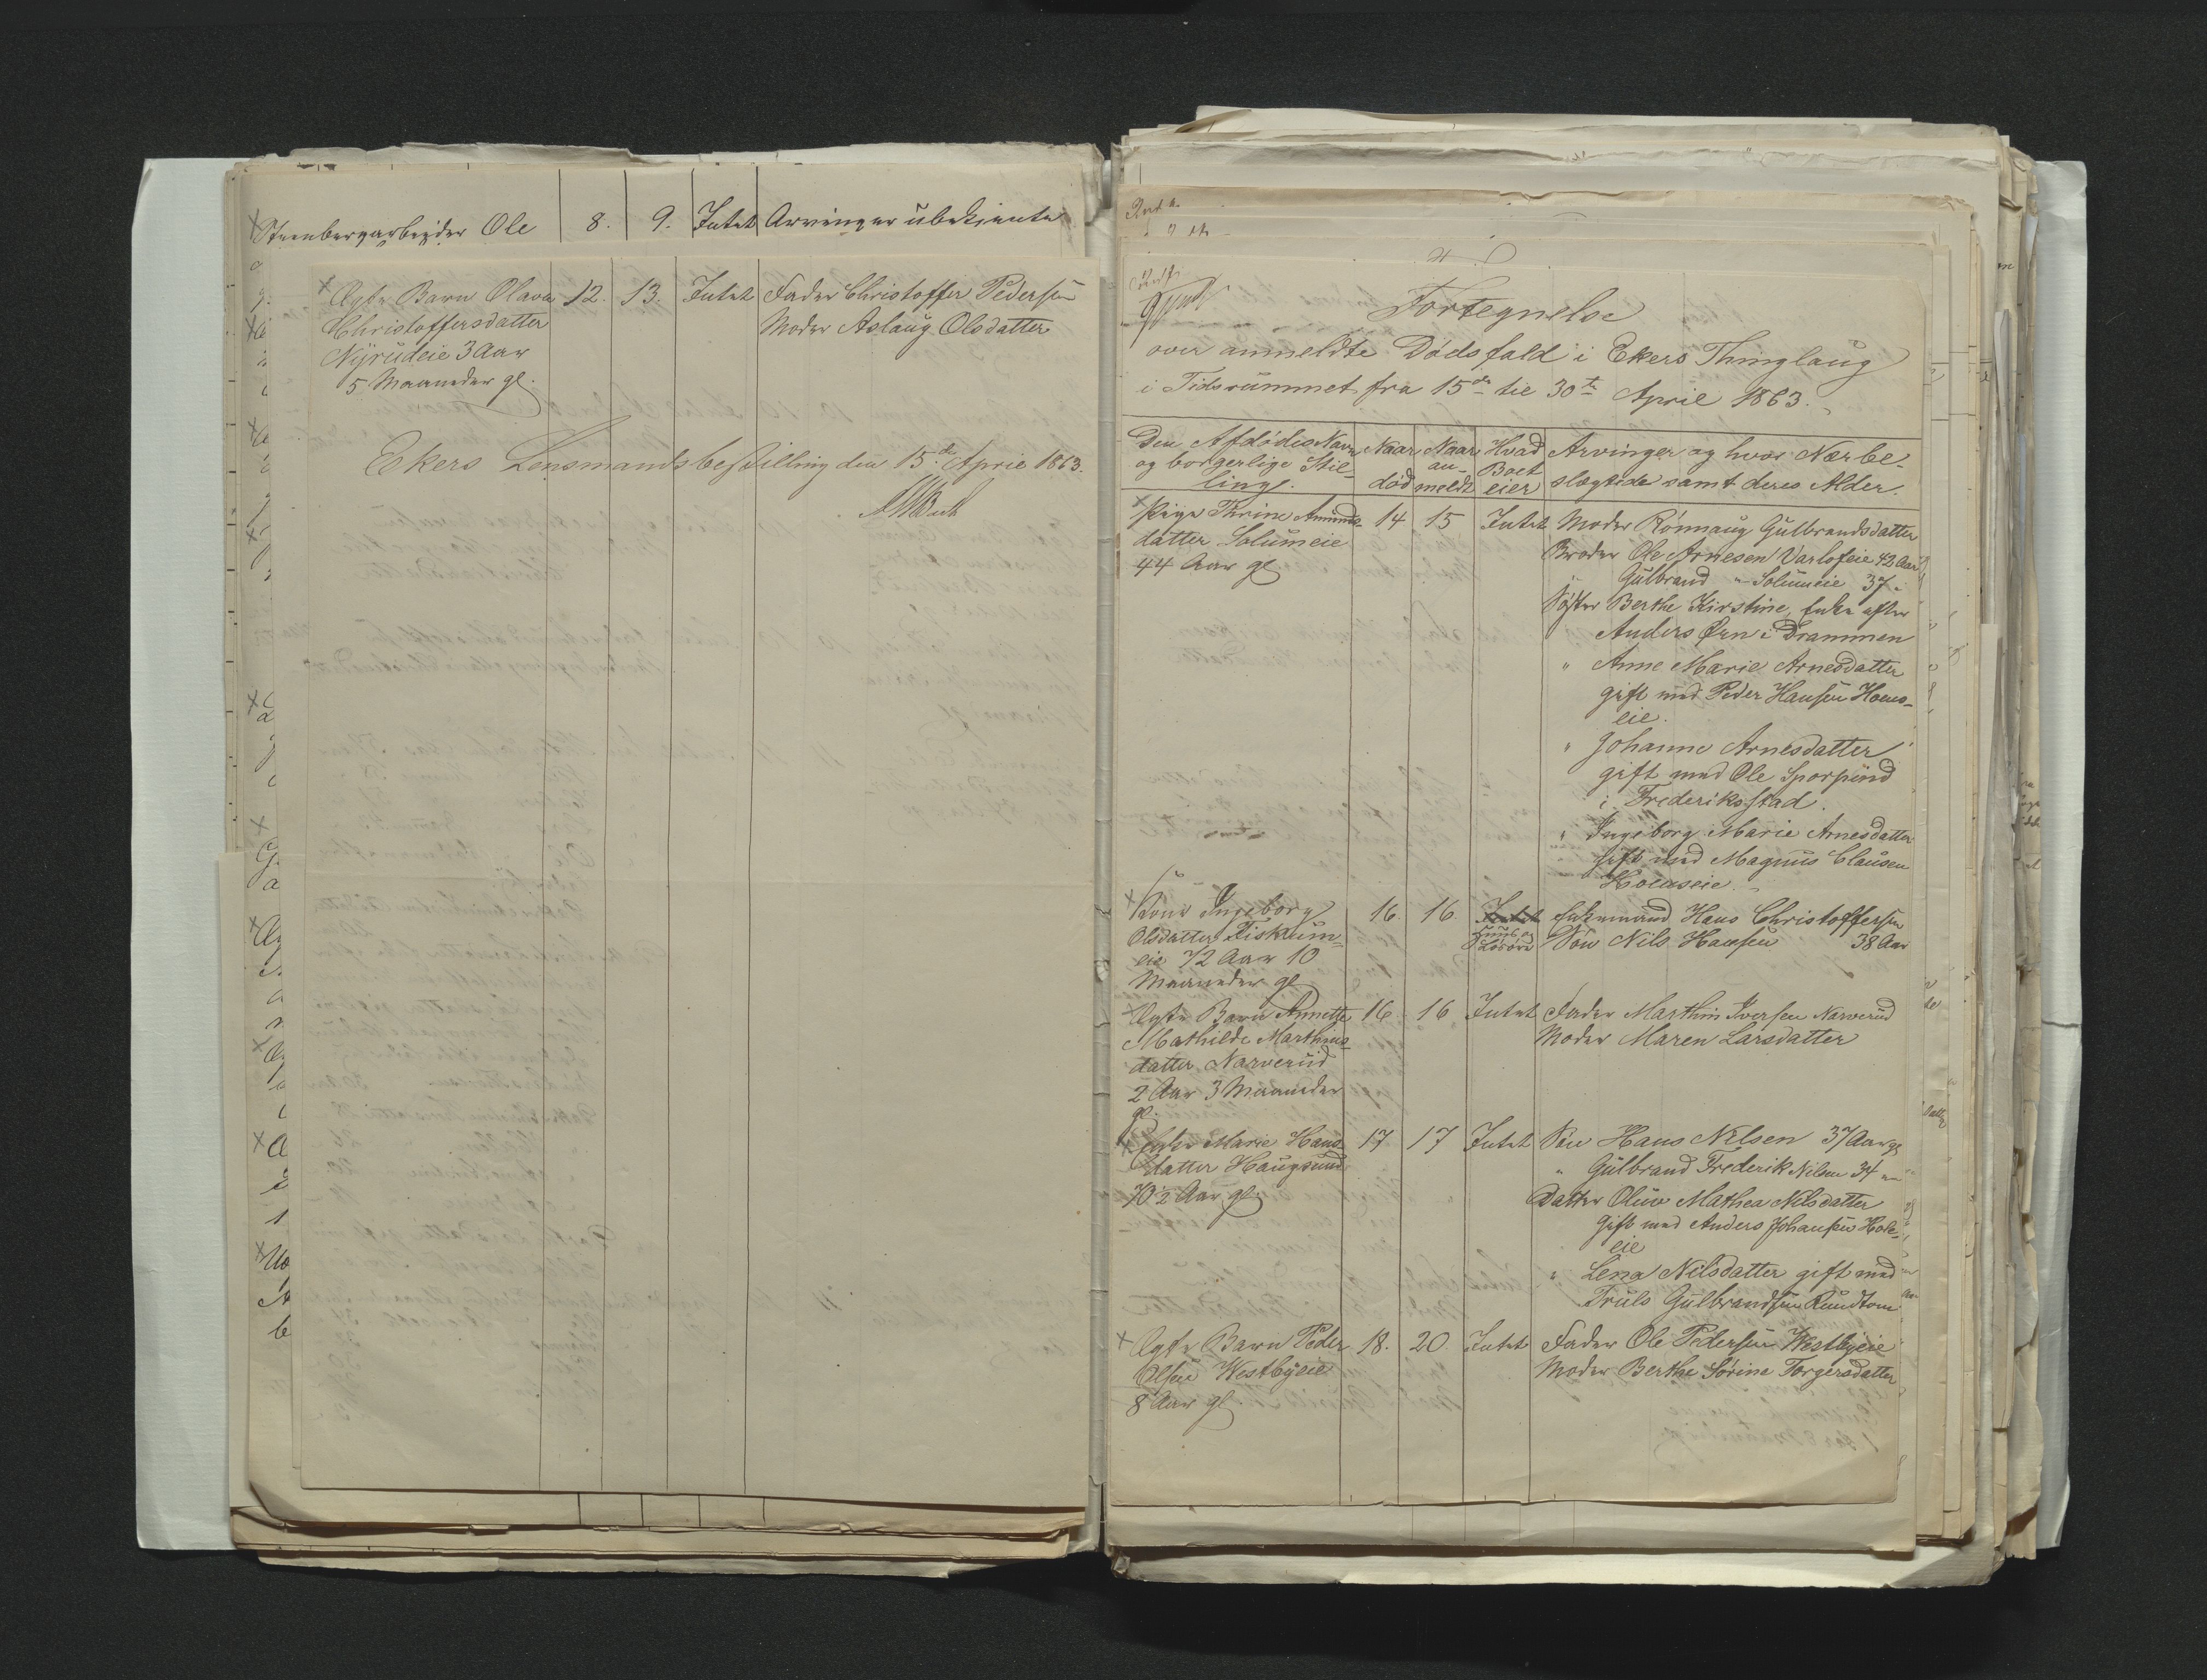 Steenbergarbeider Ole 8. 9. Intet Arvinger ubekjente
Ægte Barn Olava 12. 13. Intet Fader Christoffer Pedersen
Christoffersdatter Moder Aslaug Olsdatter
Nyrudeie 3 Aar
5 Maaneder gl.
Ekers Lensmandsbestilling den 15de April 1863.
Fortegnelse
over anmeldte Dødsfald i Ekers Thinglaug
i Tidsrummet fra 15de til 30te April 1863.
Den Afdødes Navn Naar Naar Hvad Arvinger og hvor Nærbe-
og borgerlige Stil- an- Boet
ling. død meldt eier slægtede samt deres Alder.
Pige Thrine Amunds- 14 15 Intet Moder Rønnaug Gulbrandsdatter
datter Solumeie Broder Ole Arnesen Varlofeie 42 Aar
44 Aar gl Gulbrand " Solumeie 37 "
Søster Berthe Kirstine, Enke efter
Anders Ørn i Drammen
" Anne Marie Arnesdatter
gift med Peder Hansen Hoens-
eie.
" Johanne Arnesdatter
gift med Ole Sporpind
i Frederiksstad.
" Ingeborg Marie Arnesdatter
gift med Magnus Clausen
Hoenseie.
Kone Ingeborg 16. 16. Intet Enkemand Hans Christoffersen
Olsdatter Fiskum- Huus og Løsøre Søn Nils Hansen 38 Aar
eie 72 Aar 10
Maaneder gl
Ægte Barn Annette 16. 16 Intet Fader Marthin Iversen Narverud
Mathilde Marthins- Moder Maren Larsdatter
datter Narverud
2 Aar 3 Maaneder
gl.
Enke Marie Hans- 17 17 Intet Søn Hans Nilsen 37 Aar gl
datter Haugsund " Gulbrand Frederik Nilsen 34 "
70½ Aar gl. Datter Oline Mathea Nilsdatter
gift med Anders Johansen Hoen-
eie
" Lena Nilsdatter gift med
Truls Gulbrandsen Rundtom
Ægte Barn Peder 18. 20 Intet Fader Ole Pedersen Westbyeie
Olsen Westbyeie Moder Berthe Sørine Torgersdatter
8 Aar gl.